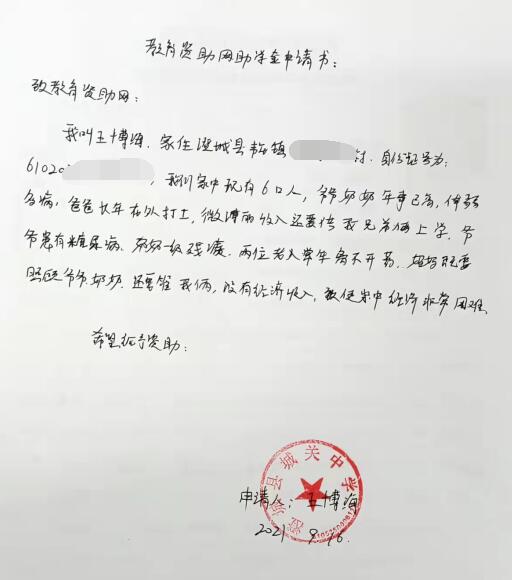 教育资助网助学金申请书：
致教育资助网：
我叫王博海，家住澄城县韦庄镇 村，身份证号为：
61020 ，我们家中现有6口人，爷爷奶奶年事已高，体弱
多病，爸爸长年在外打工，微薄的收入还要供我兄弟俩上学，爷
爷患有糖尿病，奶奶一级残废，两位老人常年离不开药，妈妈既要
照顾爷爷奶奶，还要管我俩，没有经济收入，致使家中经济非常困难。
希望给予资助：
澄城县城关中学
申请人：王博海
2021 9.16.